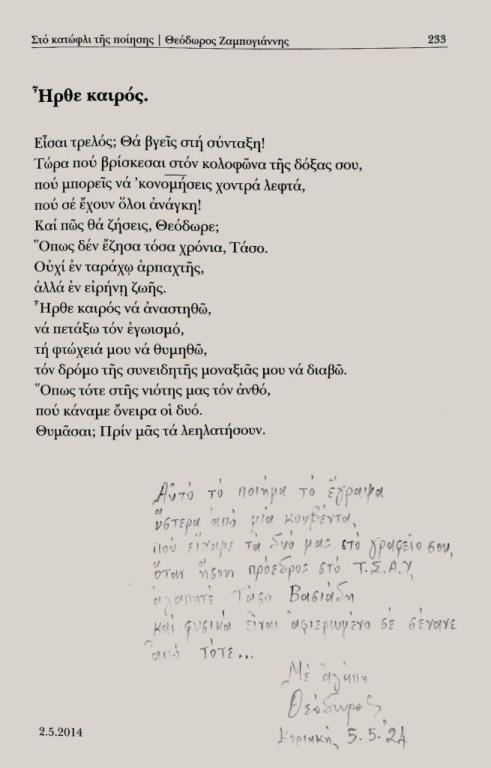 Στό κατώφλι τῆς ποίησης | Θεόδωρος Ζαμπογιάννης 233
Ἦρθε καιρός.
Εἶσαι τρελός; Θά βγεῖς στή σύνταξη!
Τώρα πού βρίσκεσαι στόν κολοφῶνα τῆς δόξας σου,
πού μπορεῖς νά ’κονομήσεις χοντρά λεφτά,
πού σέ ἔχουν ὅλοι ἀνάγκη!
Καί πῶς θά ζήσεις, Θεόδωρε;
Ὅπως δέν ἔζησα τόσα χρόνια, Τάσο.
Οὐχί ἐν ταράχῳ ἁρπαχτῆς,
ἀλλά ἐν εἰρήνῃ ζωῆς.
Ἦρθε καιρός νά ἀναστηθῶ,
νά πετάξω τόν ἐγωισμό,
τή φτώχειά μου νά θυμηθῶ,
τόν δρόμο τῆς συνειδητῆς μοναξιᾶς μου νά διαβῶ.
Ὅπως τότε στῆς νιότης μας τόν ἀνθό,
πού κάναμε ὄνειρα οἱ δυό.
Θυμᾶσαι; Πρίν μᾶς τά λεηλατήσουν.
Αὐτό τό ποίημα τό ἔγραψα
ὕστερα ἀπό μία κουβέντα,
πού εἴχαμε τά δυό μας στό γραφεῖο σου,
ὅταν ἤσουν πρόεδρος στό Τ.Σ.Α.Υ,
ἀγαπητέ Τάσο Βασιάδη
καί φυσικά εἶναι ἀφιερωμένο σέ σένανε
ἀπό τότε...
Μέ ἀγάπη
Θεόδωρος
Κυριακή, 5.5.’24
2.5.2014